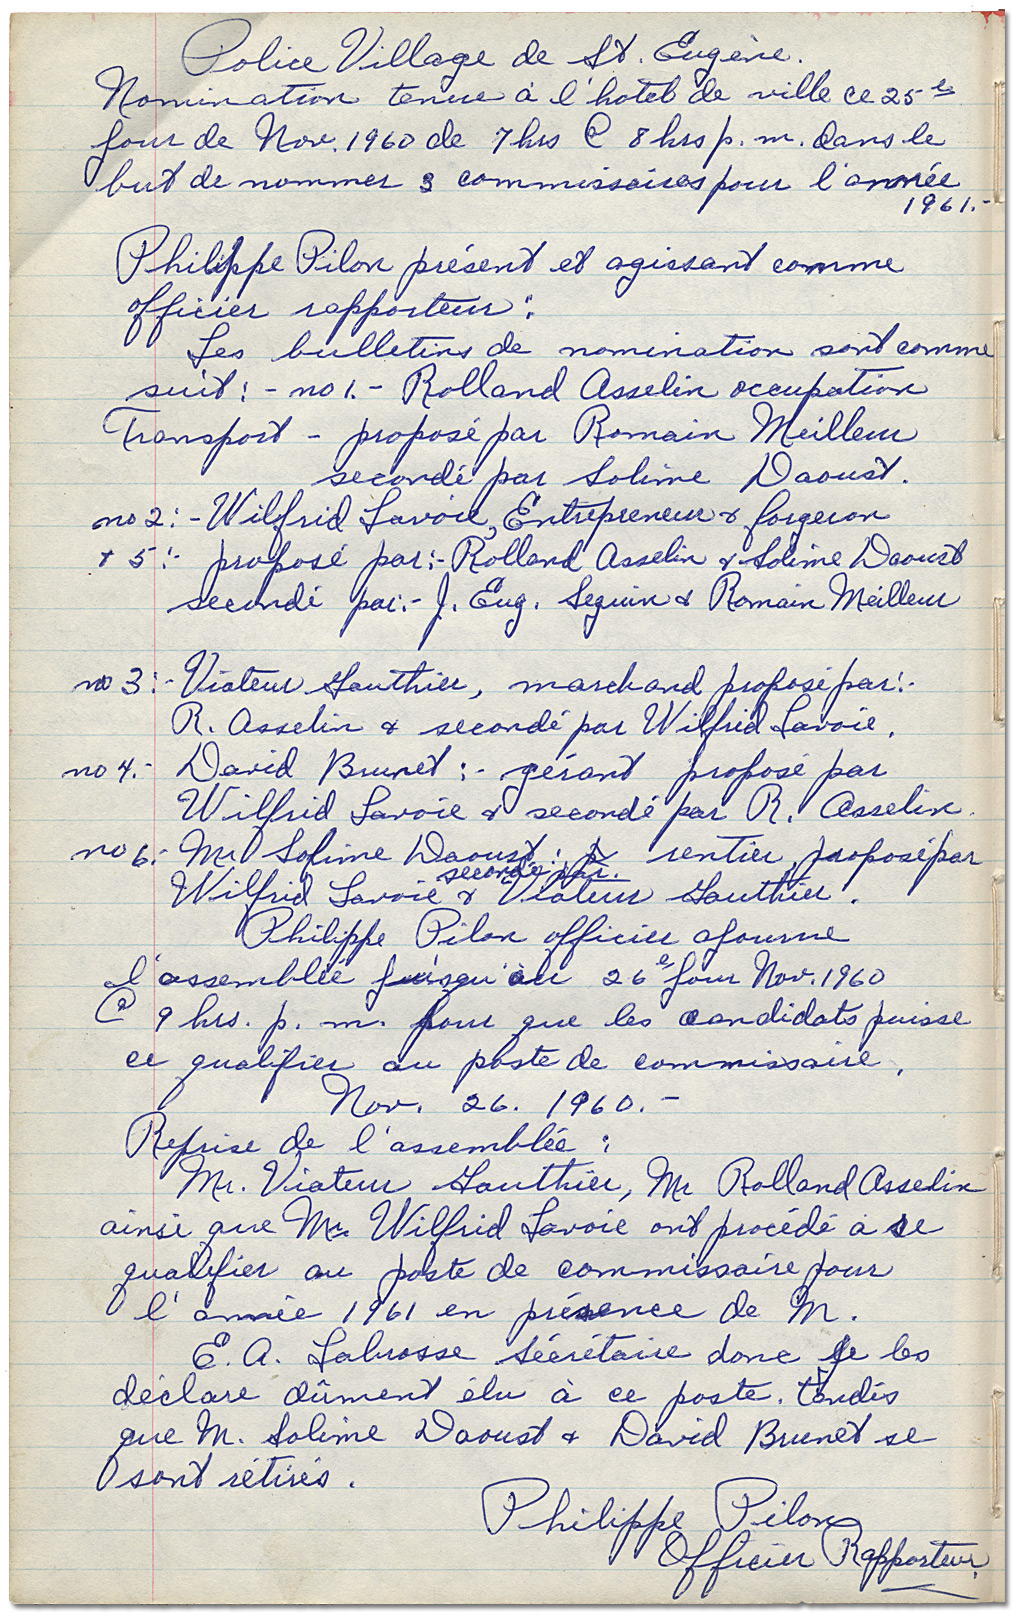 Police Village de St. Eugène.
Nomination tenue à l'hotel de ville ce 25es
jour de Nov. 1960 de 7 hrs @ 8 hrs p. m. dans le
but de nommer 3 commissaires pour l'année
1961.-
Philippe Pilon présent et agissant comme
officier rapporteur :
Les bulletins de nomination sont comme
suit :- no 1.- Rolland Asselin occupation
Transport - proposé par Romain Meilleur
secondé par Solime Daoust.
no 2:- Wilfrid Lavoie, Entrepreneur & forgeron
+ 5:- proposé par:- Rolland Asselin & Solime Daoust
secondé par:- J. Eug. Seguin & Romain Meilleur
no 3:- Viateur Gauthier, marchand proposé par:-
R. Asselin & secondé par Wilfrid Lavoie.
no 4.- David Brunet :- gérant proposé par
Wilfrid Lavoie & secondé par R. Asselin.
no 6:- Mr Solime Daoust : rentier, proposé par
secondé par.
Wilfrid Lavoie & Viateur Gauthier.
Philippe Pilon officier ajourne
l'assemblée jusqu'au 26e jour Nov. 1960
@ 9 hrs. p. m. pour que les candidats puisse
ce qualifier au poste de commissaire.
Nov. 26. 1960.-
Reprise de l'assemblée :
Mr. Viateur Gauthier, Mr Rolland Asselin
ainsi que Mr. Wilfrid Lavoie ont procédé à se
qualifier au poste de commissaire pour
l'année 1961 en présence de M.
E. A. Labrosse Sécrétaire donc je les
déclare dûment élu à ce poste. tandis
que M. Solime Daoust & David Brunet se
sont rétirés.
Philippe Pilon
Officier Rapporteur.